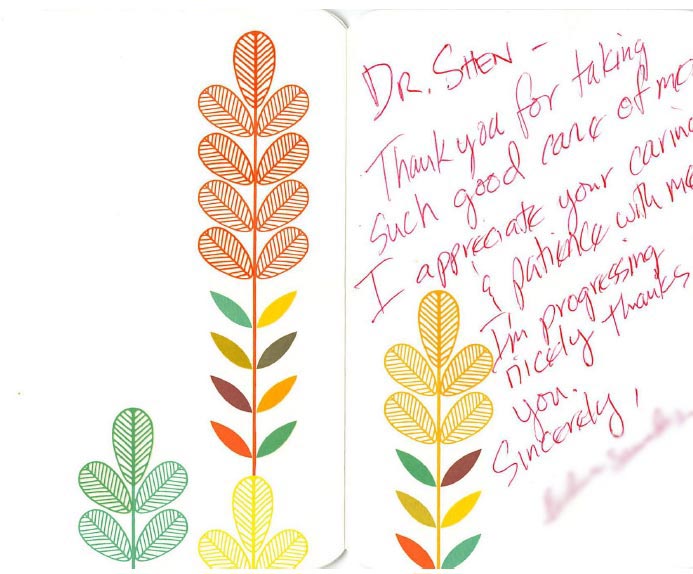 DR. SHEN -
Thank you for taking
such good care of me
I appreciate your caring
& patience with me
I'm progressing
nicely thanks
you.
Sincerely,